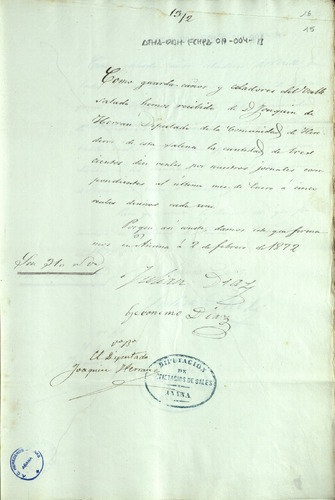 13/2
16
15
ATHA-DAH-FCHPA-017-004-13
Como guarda-caños y celadores del Valle
Salado hemos recibido de D. Joaquin de
Herran Diputado de la Comunidad de Here
deros de esta salina la cantidad de tres
cientos diez reales por nuestros jornales corres
pondientes al último mes de Enero á cinco
reales diarios cada uno
Y para que conste, damos este que firma
mos en Anana á 2 de febrero de 1872
Son 310 rs vn
Julian Diaz
Geronimo Diaz
Vº Bº
El Diputado
Joaquin Herran
DIPUTACION
DE
PROPIETARIOS DE SALES
AÑANA